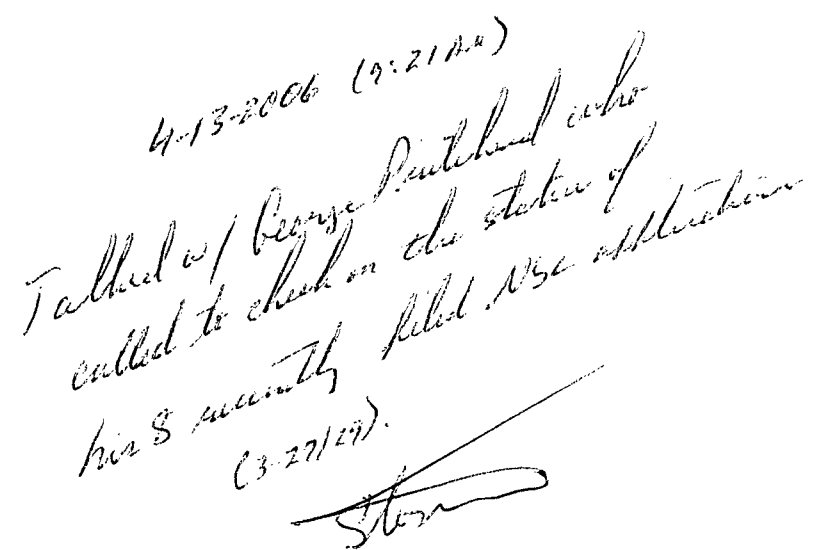 4-13-2006 (9:21 AM)
Talked w/ George Pritchard who
called to check on the status of
his 8 recently filed NSL application
(3-27/29).